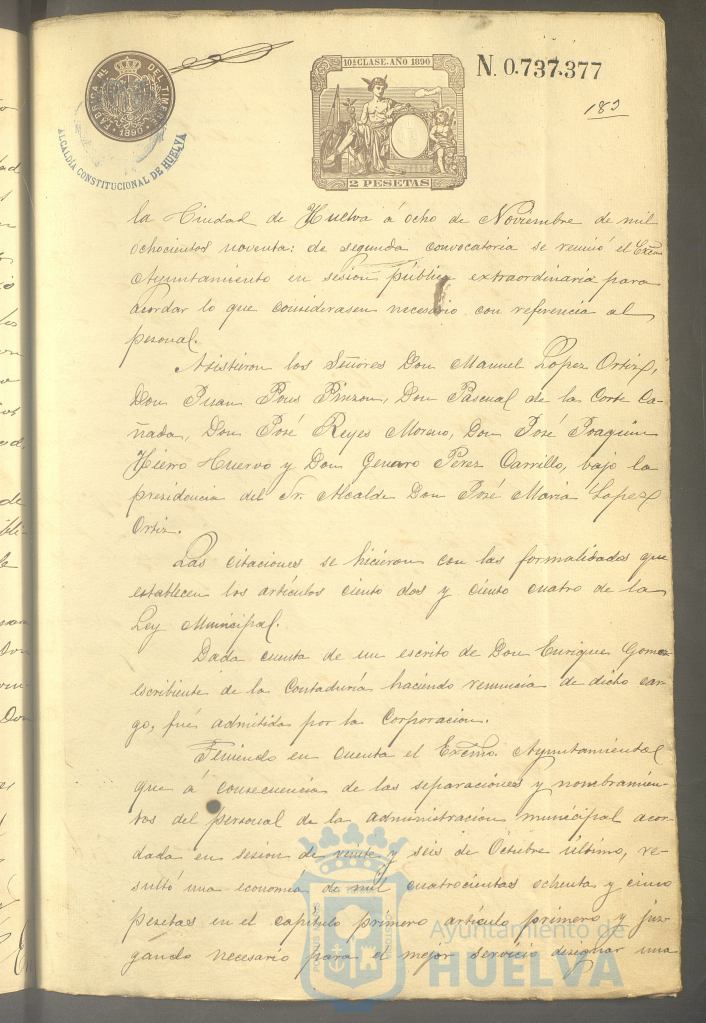 FÁBRICA NL. DEL TIMBRE
1890
ALCALDÍA CONSTITUCIONAL DE HUELVA
10ª CLASE. AÑO 1890
2 PESETAS
N. 0.737.377
183
la Ciudad de Huelva á ocho de Noviembre de mil
ochocientos noventa: de segunda convocatoria se reunió el Excmo
Ayuntamiento en sesion pública extraordinaria para
acordar lo que considerasen necesario con referencia al
personal.
Asistieron los Señores Don Manuel Lopez Ortiz,
Don Juan Pons Pinzon, Don Pascual de la Corte Ca-
ñada, Don José Reyes Moreno, Don José Joaquin
Hierro Huervo y Don Genaro Perez Carrillo, bajo la
presidencia del Sr. Alcalde Don José Maria Lopez
Ortiz.
Las citaciones se hicieron con las formalidades que
establecen los artículos ciento dos y ciento cuatro de la
Ley Municipal.
Dada cuenta de un escrito de Don Enrique Gomez
escribiente de la Contaduría haciendo renuncia de dicho car-
go, fué admitida por la Corporacion.
Teniendo en cuenta el Excmo. Ayuntamiento
que á consecuencia de las separaciones y nombramien-
tos del personal de la administracion municipal acor-
dada en sesion de veinte y seis de Octubre último, re-
sultó una economía de mil cuatrocientas ochenta y cinco
pesetas en el capítulo primero artículo primero y juz-
gando necesario para el mejor servicio designar una
Ayuntamiento de
HUELVA